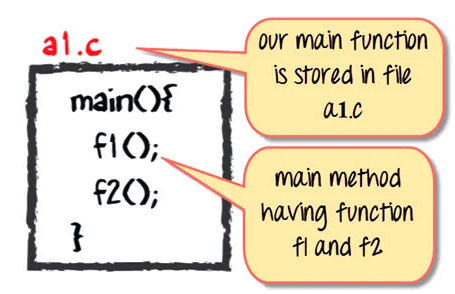 a1.c
our main function
is stored in file
a1.c
main(){
f1();
f2();
}
main method
having function
f1 and f2